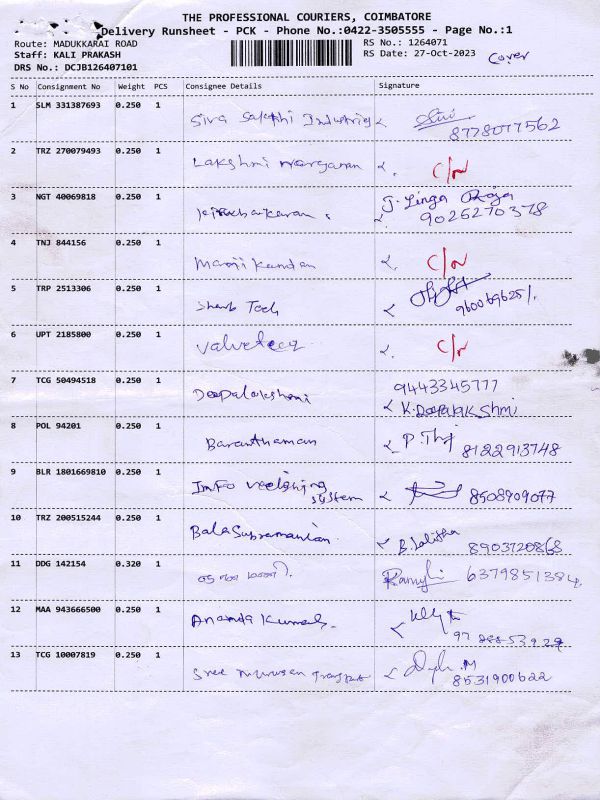 THE PROFESSIONAL COURIERS, COIMBATORE
Delivery Runsheet - PCK - Phone No.:0422-3505555 - Page No.:1
Route: MADUKKARAI ROAD
RS No.: 1264071
Staff: KALI PRAKASH
RS Date: 27-Oct-2023
Cover
DRS No.: DCJB126407101
S No Consignment No Weight PCS Consignee Details Signature
1 SLM 331387693 0.250 1 Siva Sakthi Industries
8778077562
2 TRZ 270079493 0.250 1 Lakshmi C/N
3 NGT 40069818 0.250 1 J. Linga Roja
9026270378
4 TNJ 844156 0.250 1 Mani Kandan C/N
5 TRP 2513306 0.250 1 Tech
6 UPT 2185800 0.250 1 C/N
7 TCG 50494518 0.250 1 Deepalakshmi 9443345777
K. Deepalakshmi
8 POL 94201 0.250 1 Baranthaman 8122913748
9 BLR 1801669810 0.250 1 Info
system 8508909077
10 TRZ 200515244 0.250 1 Bala Subramanian B. Lalitha
8903720868
11 DDG 142154 0.320 1 6379851384
12 MAA 943666500 0.250 1 Ananda Kumar
13 TCG 10007819 0.250 1 Sree Murugan
8531900622